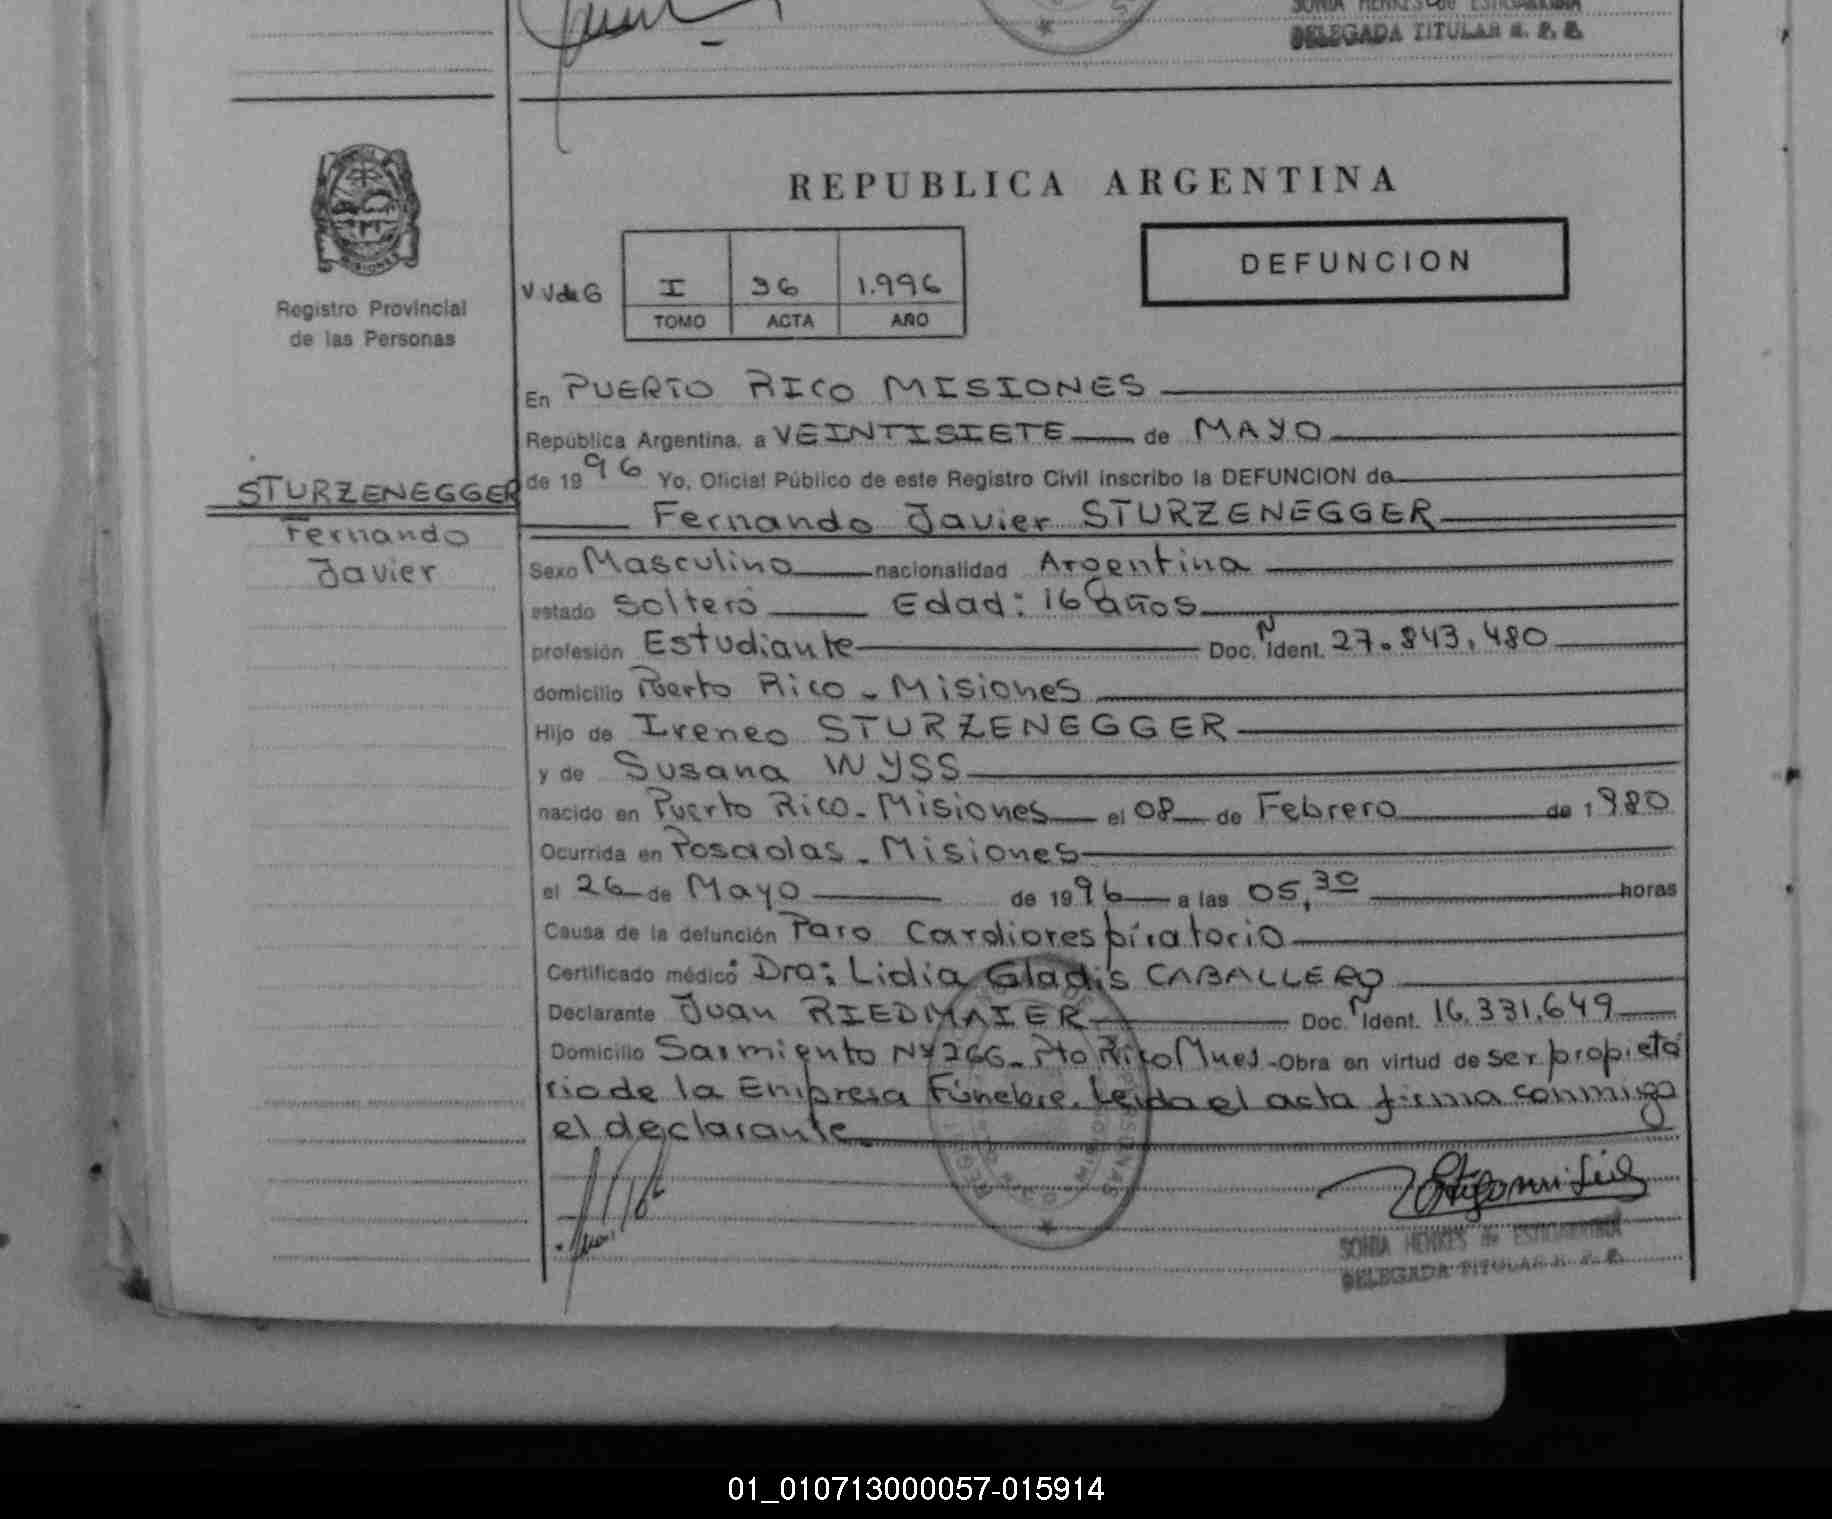 SONIA HENKES de ESTIGARRIBIA
DELEGADA TITULAR R. P. P.
REPUBLICA ARGENTINA
DEFUNCION
MISIONES
Registro Provincial
de las Personas
V V de G
I 36 1.996
TOMO ACTA AÑO
En PUERTO RICO MISIONES
República Argentina, a VEINTISIETE de MAYO
de 1996 Yo, Oficial Público de este Registro Civil inscribo la DEFUNCION de
Fernando Javier STURZENEGGER
STURZENEGGER
Fernando
Javier
Sexo Masculino nacionalidad Argentina
estado Soltero Edad: 16 años
profesión Estudiante Doc. N Ident. 27.843.480
domicilio Puerto Rico - Misiones
Hijo de Ireneo STURZENEGGER
y de Susana WYSS
nacido en Puerto Rico - Misiones el 08 de Febrero de 1980
Ocurrida en Posadas - Misiones
el 26 de Mayo de 1996 a las 05,30 horas
Causa de la defunción Paro Cardiorespiratorio
Certificado médico: Dra: Lidia Gladis CABALLERO
Declarante Juan RIEDMAIER Doc. N Ident. 16.331.649
Domicilio Sarmiento Nº 266 - Pto Rico Mnes - Obra en virtud de ser propieta
rio de la Empresa Fúnebre. Leida el acta firma conmigo
el declarante
SONIA HENKES de ESTIGARRIBIA
DELEGADA TITULAR R. P. P.
01_010713000057-015914